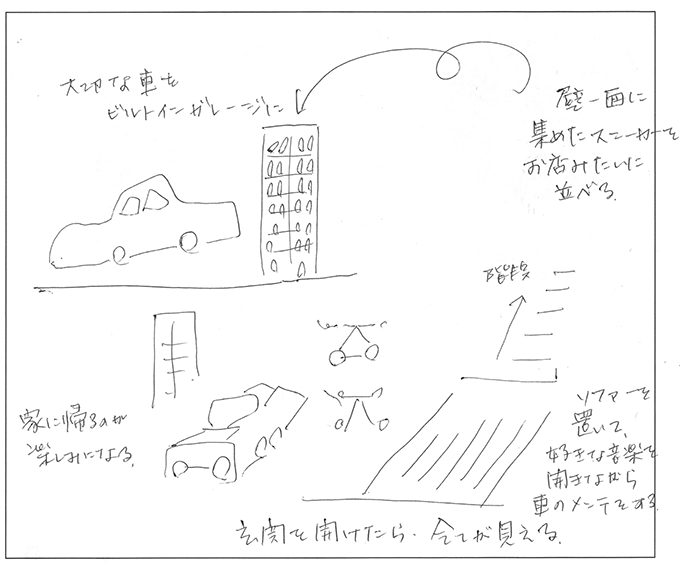 大切な車を
ビルトインガレージに
壁一面に
集めたスニーカーを
お店みたいに
並べる。
階段
家に帰るのが
楽しみになる。
ソファーを
置いて、
好きな音楽を
聞きながら
車のメンテをする。
玄関を開けたら、全てが見える。